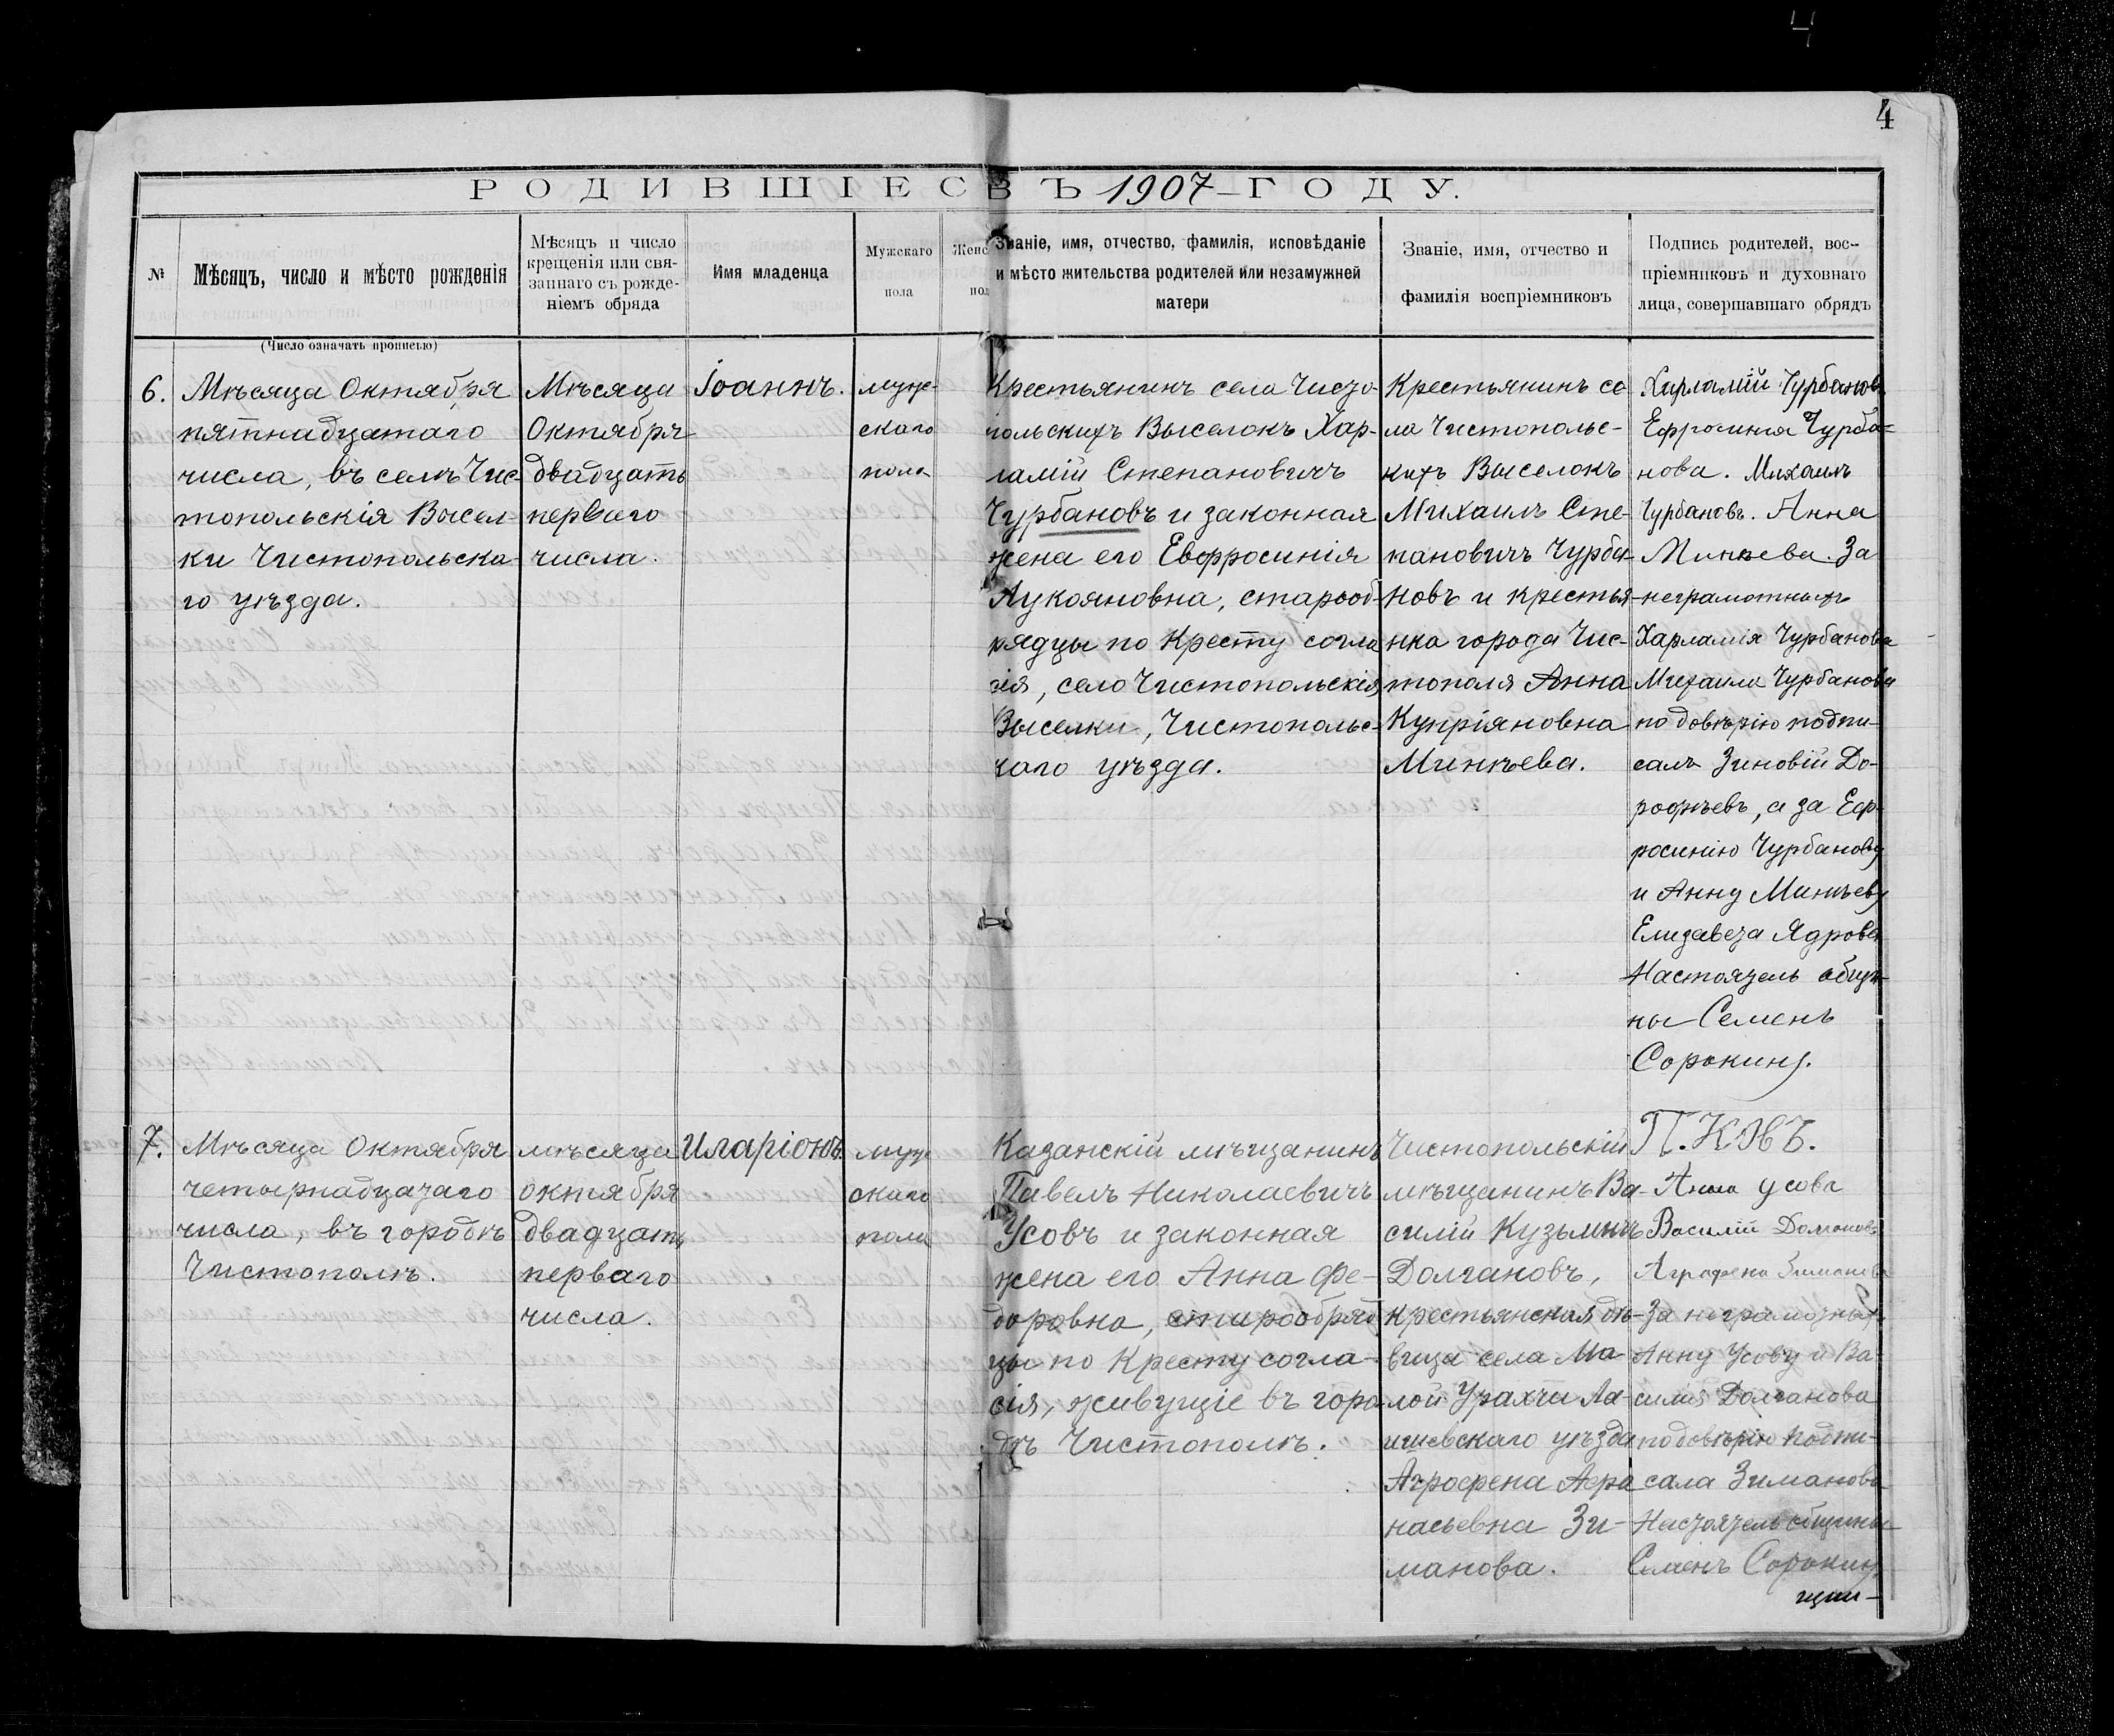 4
4
РОДИВШІЕС ВЪ 1907-ГОДУ.
№
Мѣсяцъ, число и мѣсто рожденія
(Число означать прописью)
Мѣсяцъ и число
крещенія или свя-
заннаго съ рожде-
ніемъ обряда
Имя младенца
Мужскаго
пола
Женс
пол
Званіе, имя, отчество, фамилія, исповѣданіе
и мѣсто жительства родителей или незамужней
матери
Званіе, имя, отчество и
фамилія воспріемниковъ
Подпись родителей, вос-
пріемниковъ и духовнаго
лица, совершавшаго обрядъ
6.
Мѣсяца Октября
пятнадцатаго
числа, въ селѣ Чис-
топольскія Высел-
ки Чистопольска-
го уѣзда.
Мѣсяца
Октября
двадцать
перваго
числа.
Іоаннъ.
муж-
скаго
пола
Крестьянинъ села Чисто-
польскихъ Выселокъ Хар-
лампій Степановичъ
Чурбановъ и законная
жена его Евфросинія
Лукояновна, старооб-
рядцы по Кресту согла
сія, село Чистопольскія
Выселки, Чистопольс-
каго уѣзда.
Крестьянинъ се
ла Чистопольс-
кихъ Выселокъ
Михаилъ Сте-
пановичъ Чурба-
новъ и крестья-
нка города Чис-
тополя Анна
Купріяновна
Минѣева.
Харламій Чурбановъ
Ефросиния Чурба=
нова. Михаилъ
Чурбановъ. Анна
Минѣева. За
неграмотныхъ
Харламія Чурбанова
Михаила Чурбанова
по довѣрію подпи-
салъ Зиновій До-
рофѣевъ, а за Еф-
росинію Чурбанову
и Анну Минѣеву
Елизавета Ядрова
Настоятель общи-
ны Семенъ
Сорокинъ.
7.
Мѣсяца Октября
четырнадцатаго
числа, въ городѣ
Чистополѣ.
мѣсяца
октября
двадцать
перваго
числа.
Иларіонъ.
муж
скаго
пола
Казанскій мѣщанинъ
Павелъ Николаевичъ
Усовъ и законная
жена его Анна Фе-
доровна, старообряд
цы по Кресту согла-
сія, живущіе въ горо
дѣ Чистополѣ.
Чистопольскій
мѣщанинъ Ва-
силій Кузьмичъ
Долгановъ,
крестьянская дѣ-
вица села Ма-
лой Урахчи Ла-
ишевскаго уѣзда
Агрофена Афра
насьевна Зи-
манова.
Анна Усова
Василій Долгановъ
Аграфена Зиманова
За неграмотных
Анну Усову и Ва-
силія Долганова
по довѣрію подпи-
сала Зиманова
Настоятель общины
Семенъ Сорокинъ